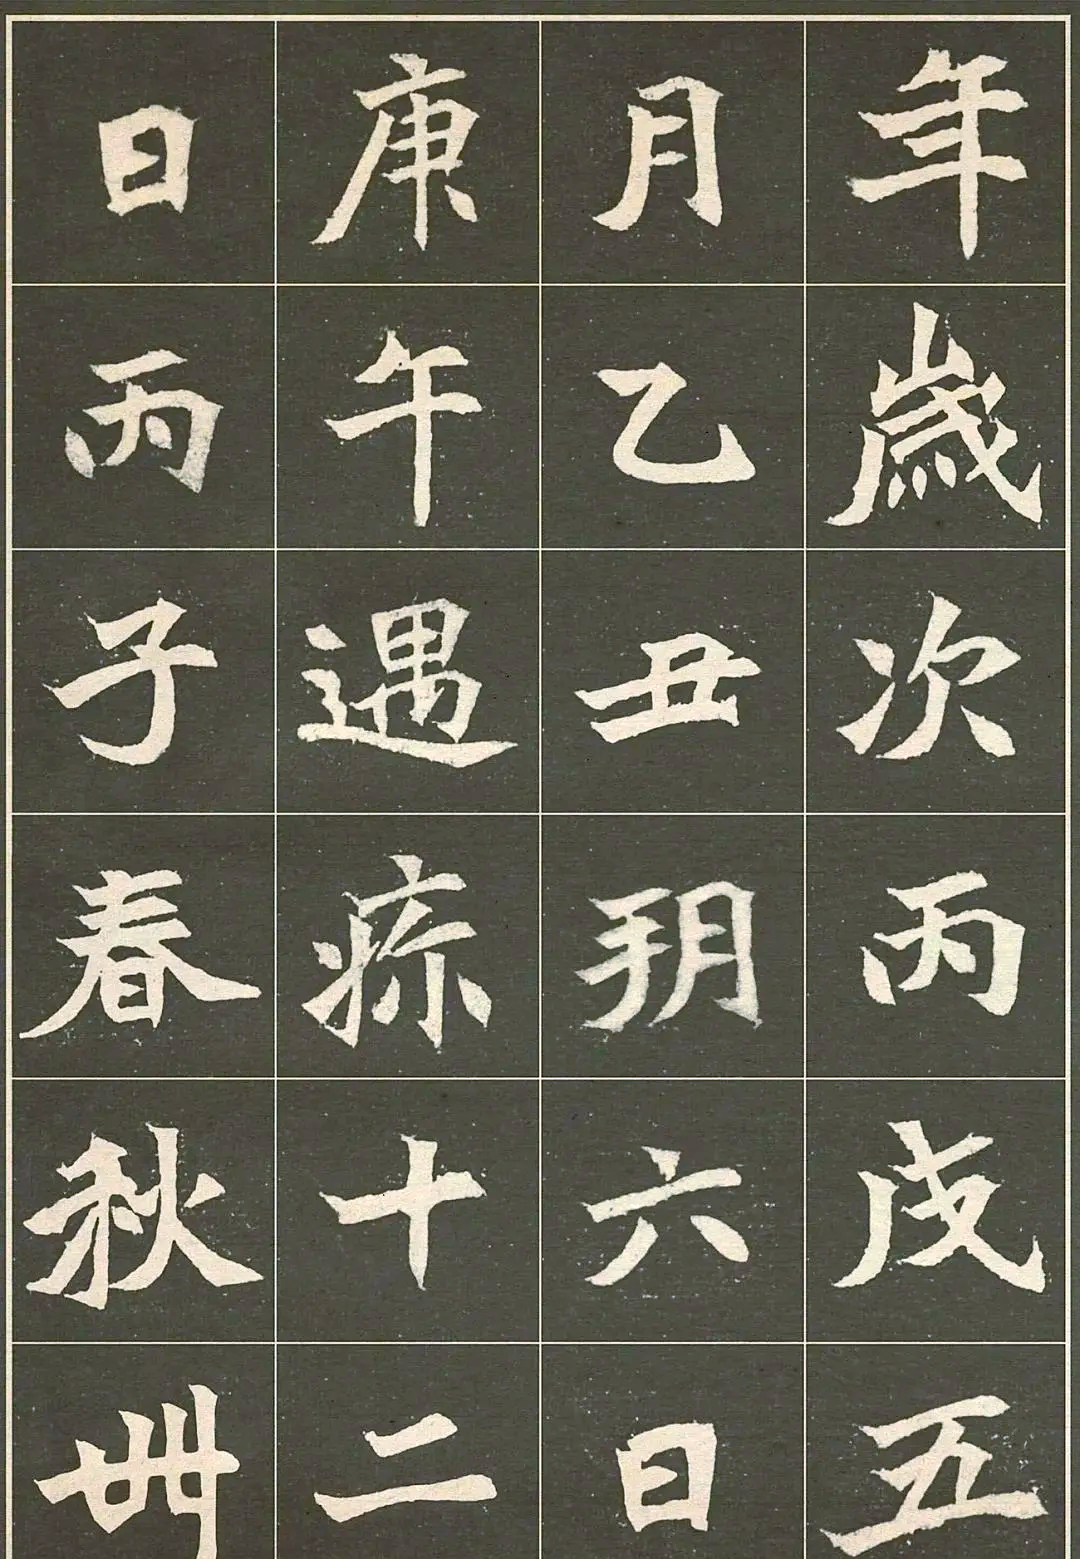 年歲次丙戌五
月乙丑朔六日
庚午遇疹十二
日丙子春秋卌